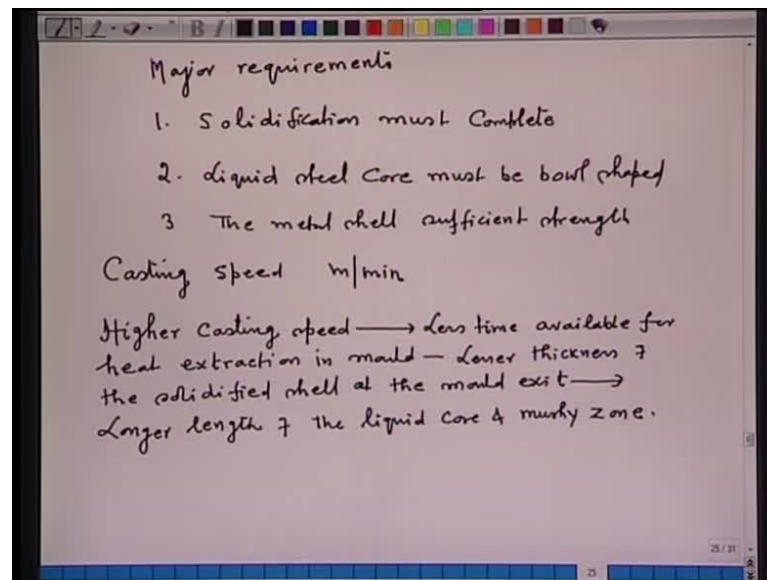 Major requirements
1. Solidification must Complete
2. Liquid steel Core must be bowl shaped
3 The metal shell sufficient strength
Casting speed m/min
Higher Casting speed → Less time available for
heat extraction in mould — Lower thickness of
the solidified shell at the mould exit →
Longer length of the liquid core & mushy zone.
25/31
25